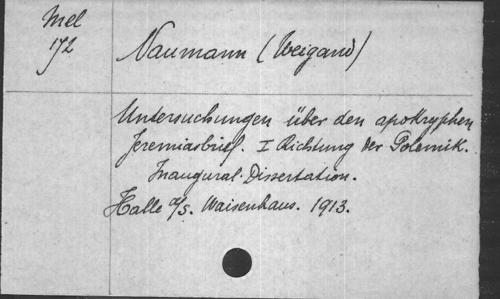 Mel
172
Naumann (Weigand)
Untersuchungen über den apokryphen
Jeremiasbrief. I Richtung der Polemik.
Inaugural-Dissertation.
Halle a/S. Waisenhaus. 1913.